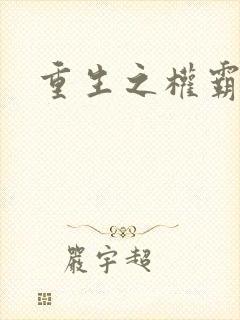 重生之權霸
嚴宇超